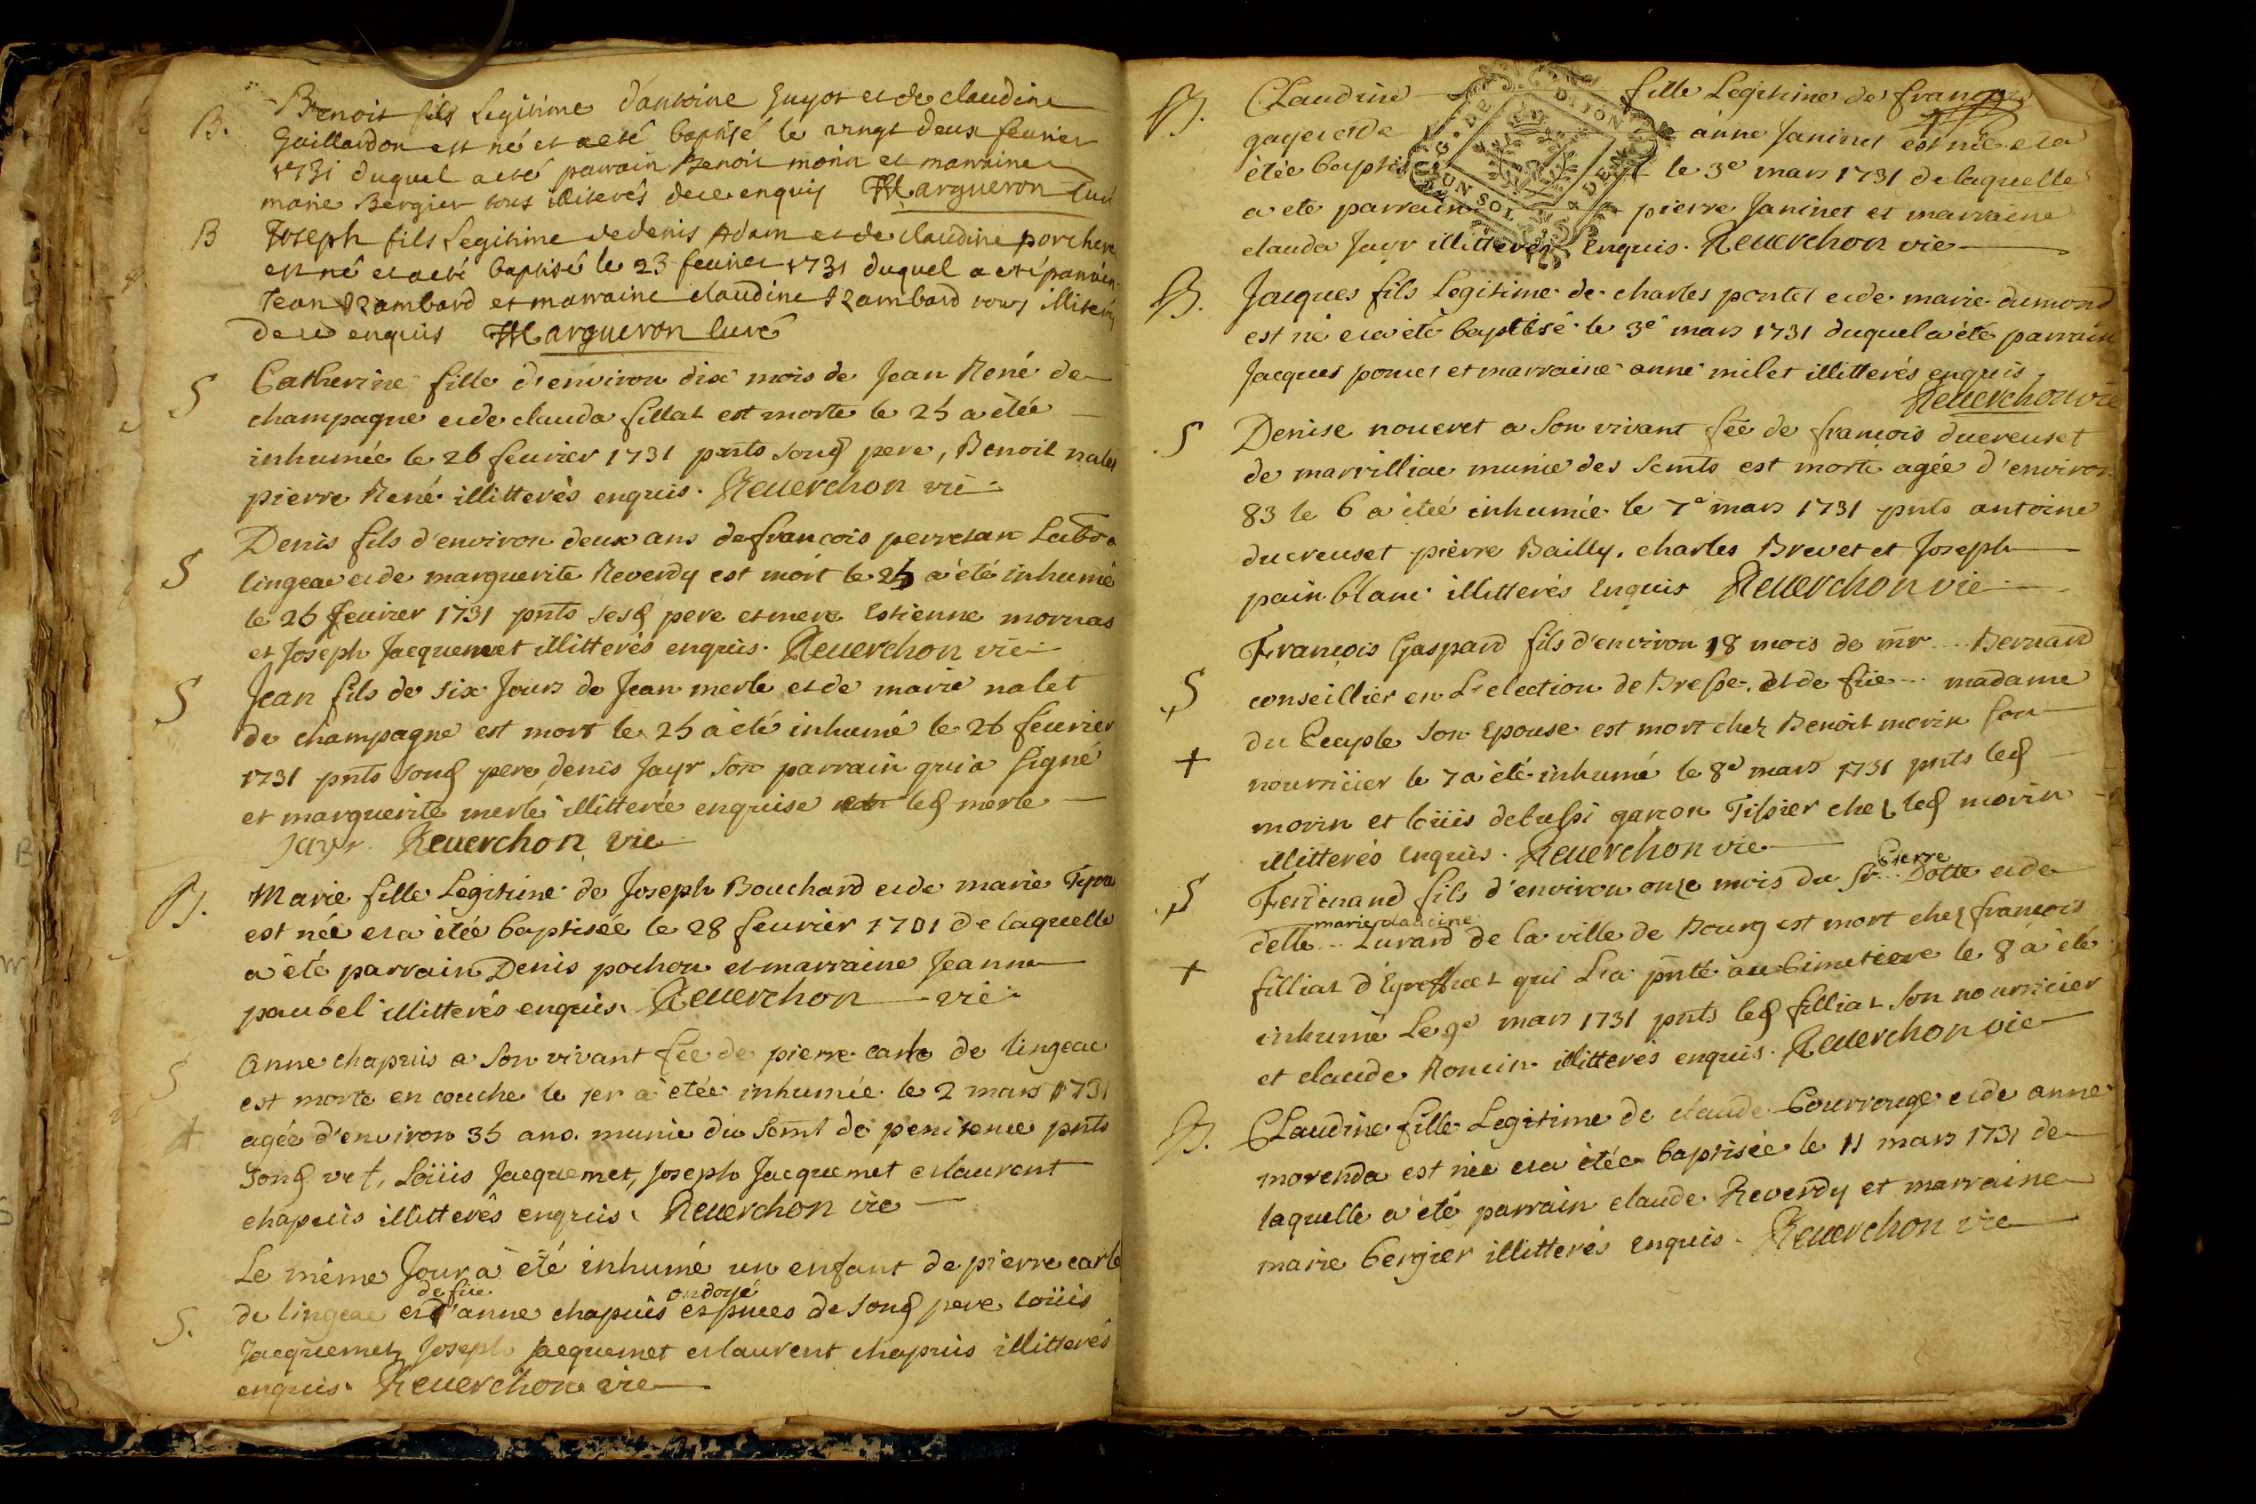 B. Benoit fils Legitime d'antoine guyot et de claudine
Gaillardon est né et a eté baptisé le vingt deux feurier
1731 duquel a eté parrain Benoit morin et marraine
marie Bergier tous illiterés de ce enquis Margueron curé
B Joseph fils Legitime de denis Adam et de claudine porcher
est né et a eté baptisé le 23 feurier 1731 duquel a eté parrain
Jean Rambard et marraine claudine Rambard tous illiterés
de ce enquis Margueron curé
S Catherine fille d'environ dix mois de Jean René de
champagne et de clauda fillat est morte le 25 a étée
inhumée le 26 feurier 1731 pnts sond pere, Benoit nalet
pierre René illitterés enquis. Reuerchon vic
S Denis fils d'environ deux ans de francois perretan
lingeac et de marguerite Reverdy est mort le 25 a été inhumé
le 26 feurier 1731 pnts sesd pere et mere Estienne mornas
et Joseph Jacquemet illitterés enquis. Reuerchon vic
S Jean fils de six Jours de Jean merle et de marie nalet
de champagne est mort le 25 a été inhumé le 26 feurier
1731 pnts sond pere, denis Jayr son parrain qui a signé
et marguerite merle illitterée enquise led merle
Jayr. Reuerchon vic
B. Marie fille Legitime de Joseph Bouchard et de marie
est née et a étée baptisée le 28 feurier 1731 de laquelle
a été parrain Denis pochon et marraine Jeanne
paubel illitterés enquis. Reuerchon vic
S Anne chapuis a son vivant fee de pierre carle de lingeac
est morte en couche le 1er a étée inhumée le 2 mars 1731
+ agée d'environ 35 ans. munie du Semt de penitence pnts
Sond vef, Loüis Jacquemet, Joseph Jacquemet et laurent
chapuis illitterés enquis. Reuerchon vic
Le même Jour a été inhumé un enfant de pierre carle
de füe ondoyé
S. de lingeac et d'anne chapuis es pnces de sond pere loüis
Jacquemet, Joseph Jacquemet et laurent chapuis illitterés
enquis. Reuerchon vic
B. CLaudine fille Legitime de francois
gayet et de anne Janinet est née et a
étée baptisée le 3e mars 1731 de laquelle
a eté parrain pierre Janinet et marraine
clauda Jayr illitterés Enquis. Reuerchon vic
G. DE DIJON
UN SOL 4 DE
B. Jacques fils Legitime de charles pontet et de marie dumond
est né et a été baptisé le 3e mars 1731 duquel a été parrain
Jacques pontet et marraine anne milet illitterés enquis.
Reuerchon vic
S Denise noueret a Son vivant fee de francois ducreuset
de marvilliac munie des Semts est morte agée d'environ
83 le 6 a étée inhumée le 7e mars 1731 pnts antoine
ducreuset pierre Bailly, charles Brevet et Joseph
pain blanc illitterés Enquis Reuerchon vic
S François Gaspard fils d'environ 18 mois de mr ... Bernard
conseillier en L'election de Bresse. et de füe ... madame
+ du Peuple Son Epouse est mort chez Benoit morin son
nourricier le 7 a été inhumé le 8e mars 1731 pnts led
morin et loüis garcon Tissier chez led morin
illitterés Enquis. Reuerchon vic
Pierre
S Ferdinand fils d'environ onze mois du Sr... Dotte et de
marie claudine
delle ... Lurard de la ville de Bourg est mort chez francois
+ filliat d'Egreffuet qui L'a pnté au Cimetiere le 8 a été
inhumé Le 9e mars 1731 pnts led filliat Son nourricier
et claude Roncin illitterés enquis. Reuerchon vic
B. CLaudine fille Legitime de claude Bourrouge et de anne
morenda est née et a étée baptisée le 11 mars 1731 de
laquelle a été parrain claude Reverdy et marraine
marie bergier illitterés Enquis. Reuerchon vic